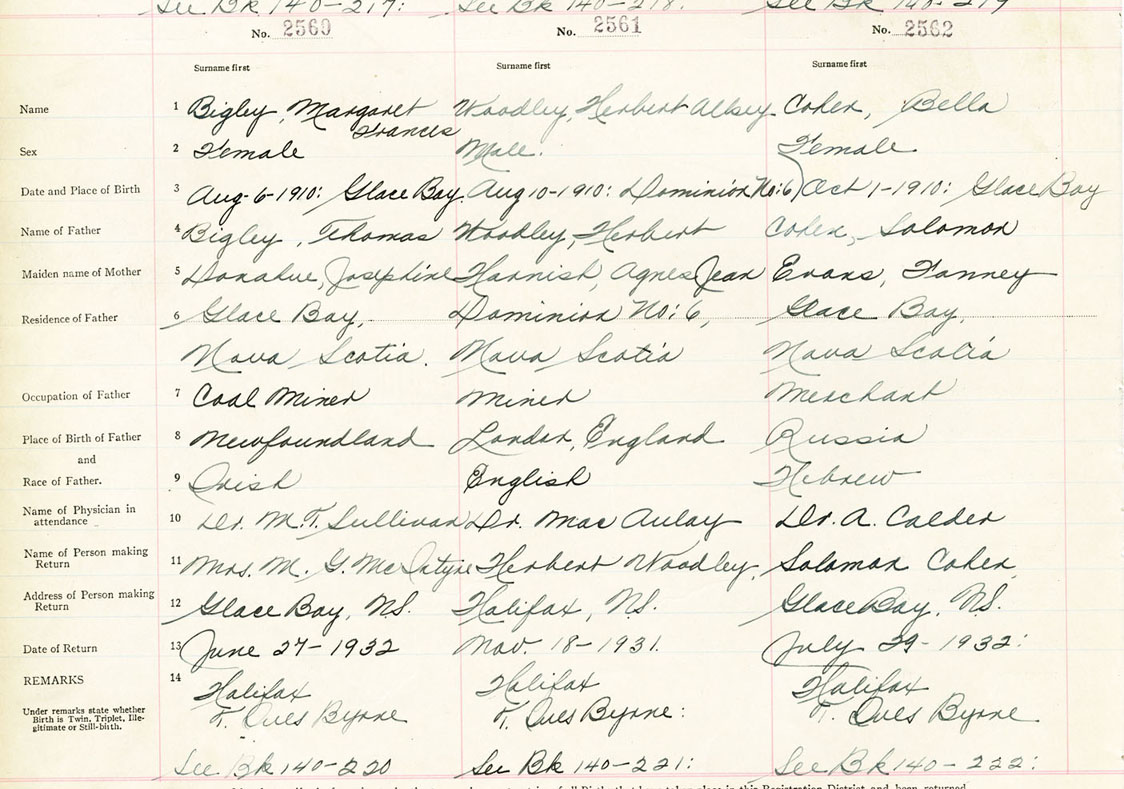 See Bk 140-217: See Bk 140-218. See Bk 140-219
No. 2560 No. 2561 No. 2562
Surname first Surname first Surname first
Name 1 Bigley, Margaret Frances Woodley, Herbert Cohen, Bella
Sex 2 Female Male. Female
Date and Place of Birth 3 Aug-6-1910: Glace Bay. Aug 10-1910: Dominion No:6) Oct 1-1910: Glace Bay
Name of Father 4 Bigley, Thomas Woodley, Herbert Cohen, Solomon
Maiden name of Mother 5 Donahue, Josephine Harnish, Agnes Jean Evans, Fanney
Residence of Father 6 Glace Bay, Dominion No:6, Glace Bay,
Nova Scotia. Nova Scotia Nova Scotia
Occupation of Father 7 Coal Miner Miner Merchant
Place of Birth of Father 8 Newfoundland London, England Russia
and
Race of Father. 9 Irish English Hebrew
Name of Physician in attendance 10 Dr. M.T. Sullivan Dr. Mac Aulay Dr. A. Calder
Name of Person making Return 11 Mrs. M. G. McIntyre Herbert Woodley, Solomon Cohen,
Address of Person making Return 12 Glace Bay, N.S. Halifax, N.S. Glace Bay, N.S.
Date of Return 13 June 27-1932 Nov. 18-1931. July 29-1932:
REMARKS 14 Halifax Halifax Halifax
Under remarks state whether Birth is Twin, Triplet, Ille-gitimate or Still-birth. T. Ives Byrne T. Ives Byrne: T. Ives Byrne
See Bk 140-220 See Bk 140-221: See Bk 140-222: